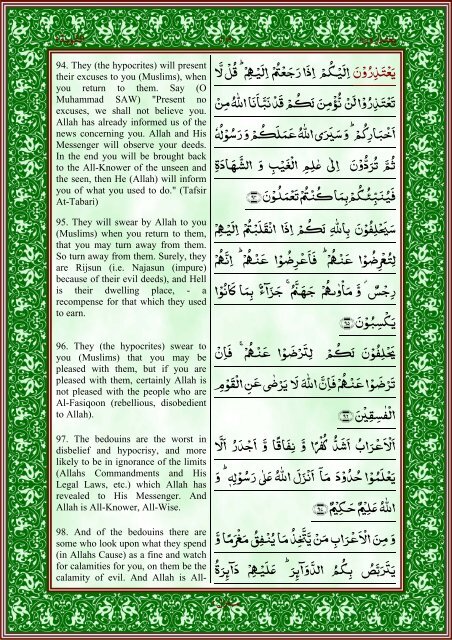 94. They (the hypocrites) will present
their excuses to you (Muslims), when
you return to them. Say (O
Muhammad SAW) "Present no
excuses, we shall not believe you.
Allah has already informed us of the
news concerning you. Allah and His
Messenger will observe your deeds.
In the end you will be brought back
to the All-Knower of the unseen and
the seen, then He (Allah) will inform
you of what you used to do." (Tafsir
At-Tabari)
يَعْتَذِرُوْنَ اِلَيْكُمْ اِذَا رَجَعْتُمْ اِلَيْهِمْ ؕ قُلْ لَّا
تَعْتَذِرُوْا لَنْ نُّؤْمِنَ لَكُمْ قَدْ نَبَّاَنَا اللّٰهُ مِنْ
اَخْبَارِكُمْ ؕ وَ سَيَرَى اللّٰهُ عَمَلَكُمْ وَ رَسُوْلُهٗ
ثُمَّ تُرَدُّوْنَ اِلٰى عٰلِمِ الْغَيْبِ وَ الشَّهَادَةِ
فَيُنَبِّئُكُمْ بِمَا كُنْتُمْ تَعْمَلُوْنَ
95. They will swear by Allah to you
(Muslims) when you return to them,
that you may turn away from them.
So turn away from them. Surely, they
are Rijsun (i.e. Najasun (impure)
because of their evil deeds), and Hell
is their dwelling place, - a
recompense for that which they used
to earn.
سَيَحْلِفُوْنَ بِاللّٰهِ لَكُمْ اِذَا انْقَلَبْتُمْ اِلَيْهِمْ
لِتُعْرِضُوْا عَنْهُمْ ؕ فَاَعْرِضُوْا عَنْهُمْ ؕ اِنَّهُمْ
رِجْسٌ ؗ وَّ مَاْوٰىهُمْ جَهَنَّمُ ۚ جَزَآءًۢ بِمَا كَانُوْا
يَكْسِبُوْنَ
96. They (the hypocrites) swear to
you (Muslims) that you may be
pleased with them, but if you are
pleased with them, certainly Allah is
not pleased with the people who are
Al-Fasiqoon (rebellious, disobedient
to Allah).
يَحْلِفُوْنَ لَكُمْ لِتَرْضَوْا عَنْهُمْ ۚ فَاِنْ
تَرْضَوْا عَنْهُمْ فَاِنَّ اللّٰهَ لَا يَرْضٰى عَنِ الْقَوْمِ
الْفٰسِقِيْنَ
97. The bedouins are the worst in
disbelief and hypocrisy, and more
likely to be in ignorance of the limits
(Allahs Commandments and His
Legal Laws, etc.) which Allah has
revealed to His Messenger. And
Allah is All-Knower, All-Wise.
اَلْاَعْرَابُ اَشَدُّ كُفْرًا وَّ نِفَاقًا وَّ اَجْدَرُ اَلَّا
يَعْلَمُوْا حُدُوْدَ مَاۤ اَنْزَلَ اللّٰهُ عَلٰى رَسُوْلِهٖ ؕ وَ
اللّٰهُ عَلِيْمٌ حَكِيْمٌ
98. And of the bedouins there are
some who look upon what they spend
(in Allahs Cause) as a fine and watch
for calamities for you, on them be the
calamity of evil. And Allah is All-
وَ مِنَ الْاَعْرَابِ مَنْ يَّتَّخِذُ مَا يُنْفِقُ مَغْرَمًا وَّ
يَتَرَبَّصُ بِكُمُ الدَّوَآئِرَ ؕ عَلَيْهِمْ دَآئِرَةُ